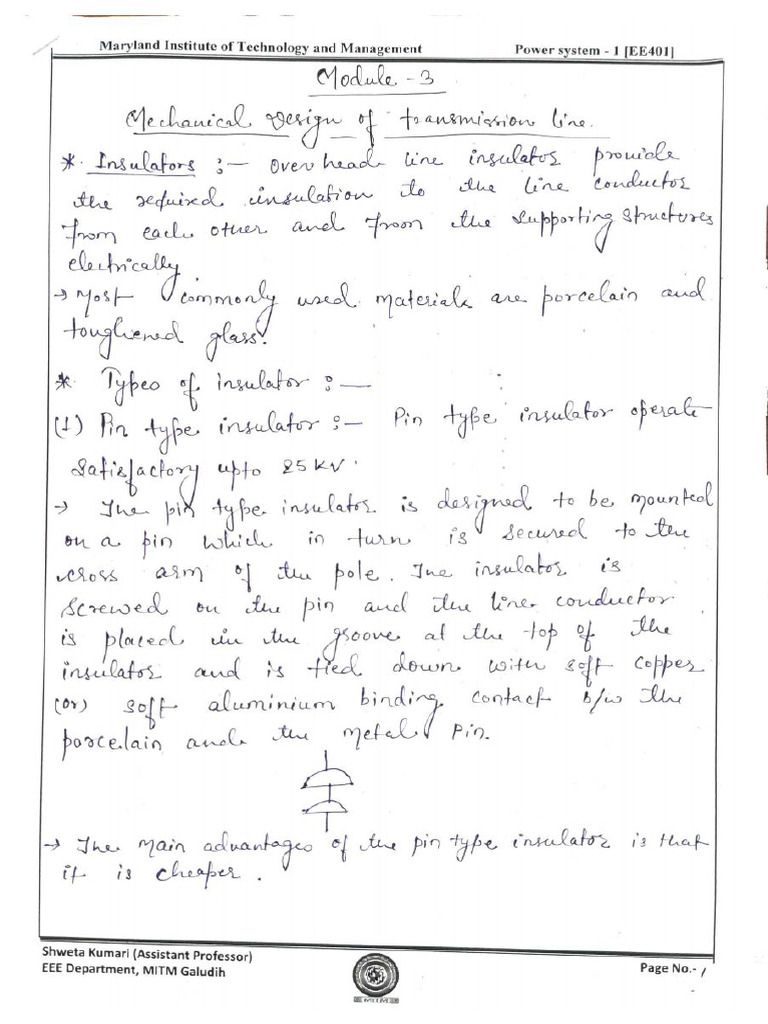 Maryland Institute of Technology and Management Power system - 1 [EE401]
Module - 3
Mechanical Design of transmission line.
* Insulators :- over head line insulator provide
the required insulation to the line conductor
from each other and from the supporting structures
electrically
→ Most commonly used materials are porcelain and
toughened glass.
* Types of insulator :-
(1) Pin type insulator :- Pin type insulator operate
satisfactory upto 25 KV.
→ The pin type insulator is designed to be mounted
on a pin which in turn is secured to the
cross arm of the pole. The insulator is
screwed on the pin and the line conductor
is placed in the groove at the top of the
insulator and is tied down with soft copper
(or) soft aluminium binding contact b/w the
porcelain and the metal pin.
→ The main advantages of the pin type insulator is that
it is cheaper.
Shweta Kumari (Assistant Professor)
EEE Department, MITM Galudih Page No.- 1
MITM